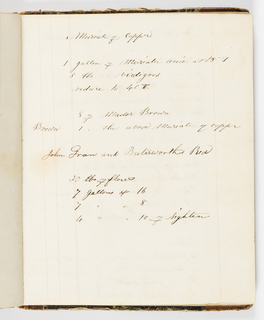 Muriate of Copper
1 gallon of Muriatic acid
8 lbs Verdigris
reduce to
8 of Madder Brown
Brown 1 - the above Muriate of Copper
John Dran and Butterworths Red
30 lbs of flour
7 gallons of 16
7 " " 8
4 " " 10 of